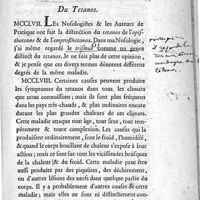 Du Tetanos.
MCCLVII. LEs Nosologistes & les Auteurs de
Pratique ont fait la distinction du tetanos de l'opis-
thotonos & de l'emprosthotonos. Dans ma Nosologie,
j'ai même regardé le trismus comme un genre
distinct du tetanos. Je ne suis plus de cette opinion,
& je pense que ces divers termes dénotent différens
degrés de la même maladie.
MCCLVIII. Certaines causes peuvent produire
les symptomes du tetanos dans tous les climats
que nous connoissons; mais ils sont plus fréquens
dans les pays très-chauds, & plus ordinaires encore
durant les plus grandes chaleurs de ces climats.
Cette maladie attaque tout âge, tout sexe, tout tem-
pérament & toute complexion. Les causes qui la
produisent ordinairement, sont le froid, l'humidité,
& quand le corps bouillant de chaleur s'expose à leur
action; mais, en général, les vicissitudes brusques
de la chaleur & du froid. Cette maladie peut aussi
être produite par des piquures, des déchiremens,
ou d'autres lésions des nerfs dans quelque partie du
corps. Il y a probablement d'autres causes de cette
maladie; mais elles ne